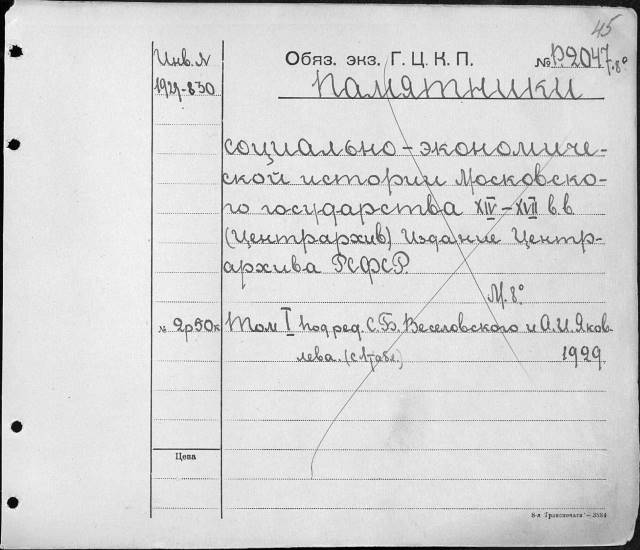 45
Инв. N
1929-830
Обяз. экз. Г. Ц. К. П.
№ Р2047 8°
Памятники
социально-экономиче-
ской истории Московско-
го государства XIV–XVII в.в
(Центрархив) Издание Центр-
архива РСФСР.
М. 8°
2р50к Том I под ред. С.Б. Веселовского и А.И. Яков-
лева. (с 1 табл.) 1929.
Цена
8-я Транспечать — 3584